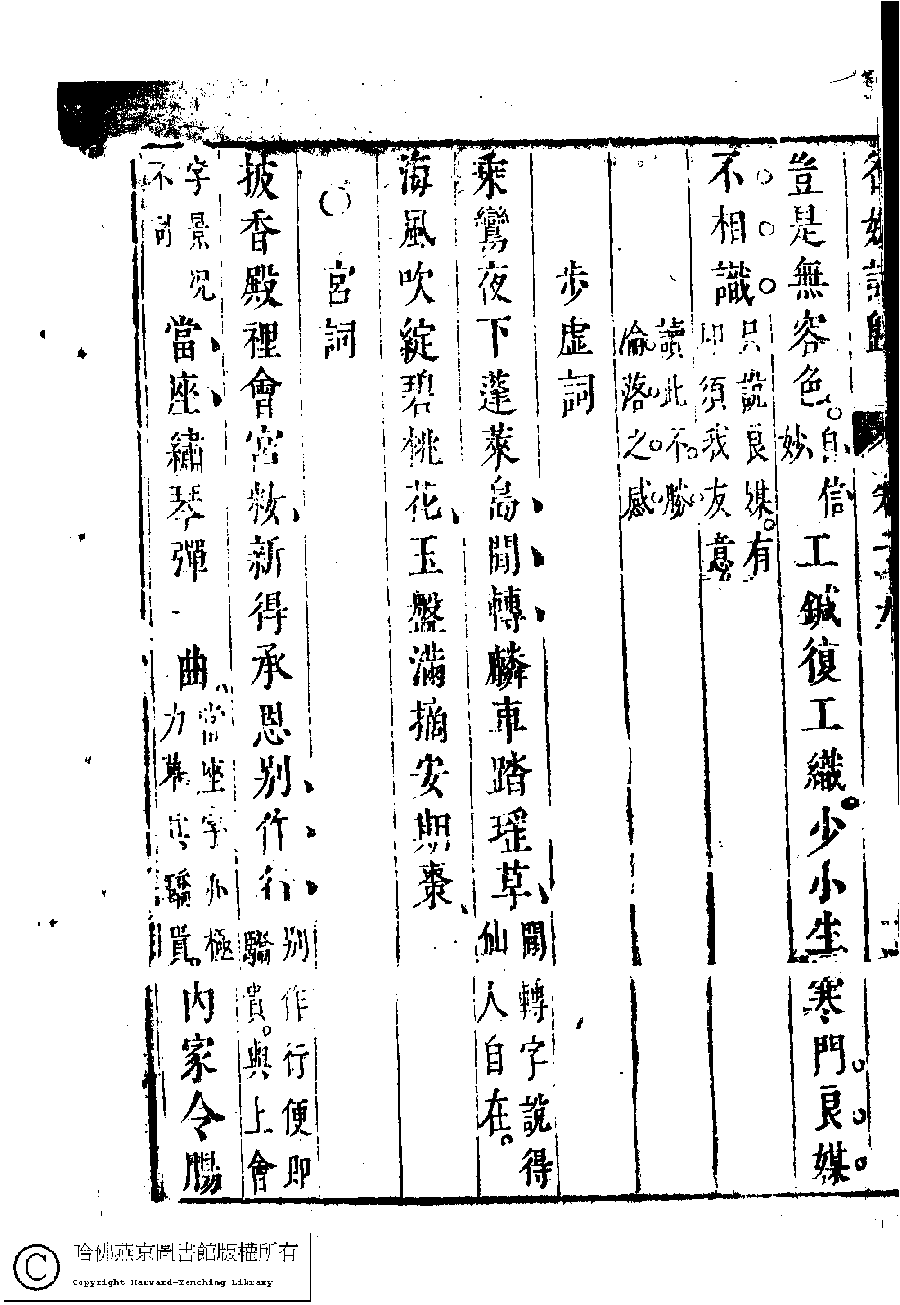 名媛詩歸 卷二十九
豈是無容色自信妙工鍼復工織少小生寒門良媒
不相識只說良媒有即須我友意
讀此不勝淪落之感
步虛詞
乘鸞夜下蓬萊島閒轉麟車踏瑶草閒轉字說得仙人自在
海風吹綻碧桃花玉盤滿摘安期棗
〇宮詞
披香殿裡會宮粧新得承恩別作行別作行便即驕貴與上會
字景況不同當座繡琴彈一曲當座字亦極力摹其驕貴內家令賜
哈佛燕京圖書館版權所有
Copyright Harvard-Yenching Library